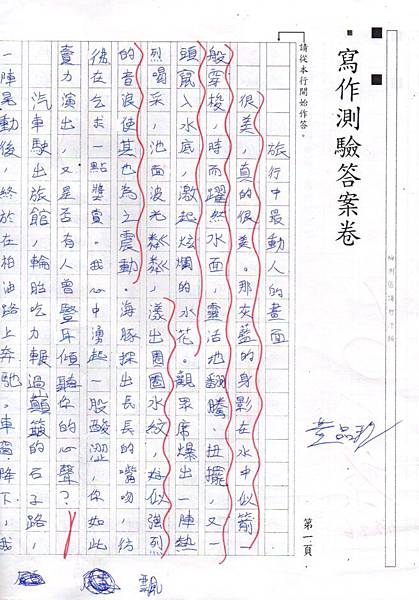 寫作測驗答案卷
請從本行開始作答。
第一頁
旅行中最動人的畫面
很美，真的很美。那灰藍的身影在水中似箭一
般穿梭，時而躍然水面，靈活地翻騰、扭擺，又一
頭竄入水底，激起炫爛的水花。觀眾席爆出一陣熱
烈喝采，池面波光粼粼，漾出圈圈水紋，好似強烈
的音浪使其也為之震動。海豚探出長長的嘴吻，彷
彿在乞求一點獎賞。我心中湧起一股酸澀，你如此
賣力演出，又是否有人曾豎耳傾聽你的心聲？
汽車駛出旅館，輪胎吃力輾過顛簸的石子路，
一陣晃動後，終於在柏油路上奔馳。車窗降下，我